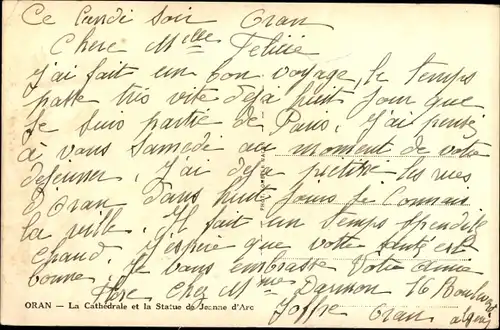 Ce Lundi Soir Oran
Chere Melle Felicie
J'ai fait un bon voyage, le temps
passe très vite deja huit Jour que
Je suis partie de Paris. J'ai pensé
à vous Samedi au moment de votre
dejeuner. J'ai deja pietiné les rues
d'Oran dans huit Jours Je Connais
la ville. Il fait un temps splendide
chaud. J'espere que votre santé est
bonne. Je vous embrasse Votre amie
chez Mme Darmon 76 Boulevard
ORAN — La Cathédrale et la Statue de Jeanne d'Arc
Joffre Oran